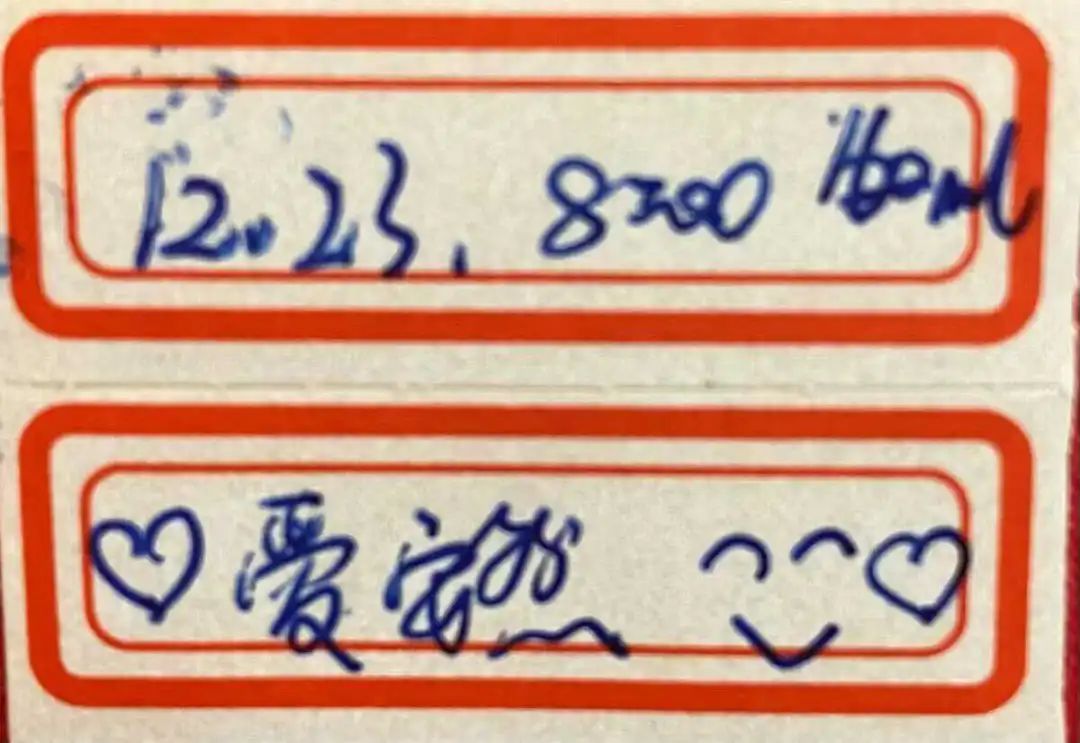 12.23. 8:00 160ml
♡爱安然 ♡